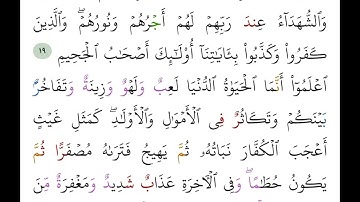 وَٱلشُّهَدَآءُ عِندَ رَبِّهِمۡ لَهُمۡ أَجۡرُهُمۡ وَنُورُهُمۡۖ وَٱلَّذِينَ
كَفَرُواْ وَكَذَّبُواْ بِـَٔايَٰتِنَآ أُوْلَٰٓئِكَ أَصۡحَٰبُ ٱلۡجَحِيمِ ١٩
ٱعۡلَمُوٓاْ أَنَّمَا ٱلۡحَيَوٰةُ ٱلدُّنۡيَا لَعِبٞ وَلَهۡوٞ وَزِينَةٞ وَتَفَاخُرُۢ
بَيۡنَكُمۡ وَتَكَاثُرٞ فِي ٱلۡأَمۡوَٰلِ وَٱلۡأَوۡلَٰدِۖ كَمَثَلِ غَيۡثٍ
أَعۡجَبَ ٱلۡكُفَّارَ نَبَاتُهُۥ ثُمَّ يَهِيجُ فَتَرَىٰهُ مُصۡفَرّٗا ثُمَّ
يَكُونُ حُطَٰمٗاۖ وَفِي ٱلۡأٓخِرَةِ عَذَابٞ شَدِيدٞ وَمَغۡفِرَةٞ مِّنَ